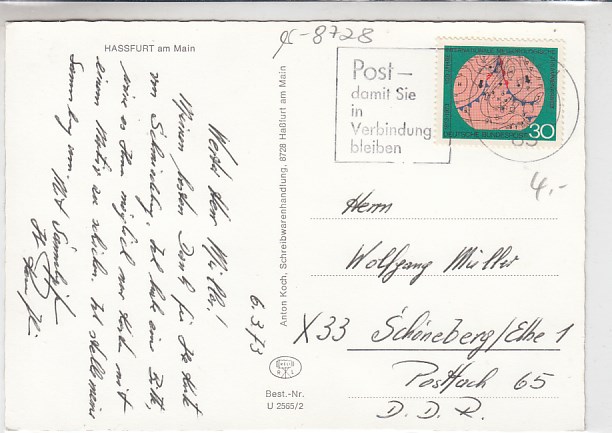 HASSFURT am Main
gc-8728
Post –
damit Sie
in
Verbindung
bleiben
DEUTSCHE BUNDESPOST
30
4,-
6.3.73
Werter Herr Müller!
Meinen besten Dank für Ihre Karte
von Schöneberg. Ich habe eine Bitte,
wäre es Ihnen möglich eine Karte mit
einem Motiv zu schicken. Ich stelle meine
Sammlung
Mit
Anton Koch, Schreibwarenhandlung, 8728 Haßfurt am Main
Best.-Nr.
U 2565/2
Herrn
Wolfgang Müller
X33 Schöneberg/Elbe 1
Postfach 65
D. D. R.